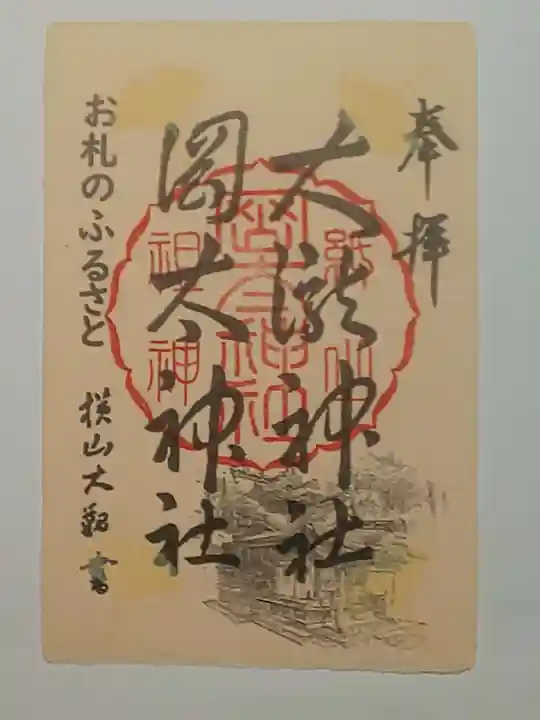 奉拝
大瀧神社
岡太神社
お札のふるさと 横山大観 書
祖神